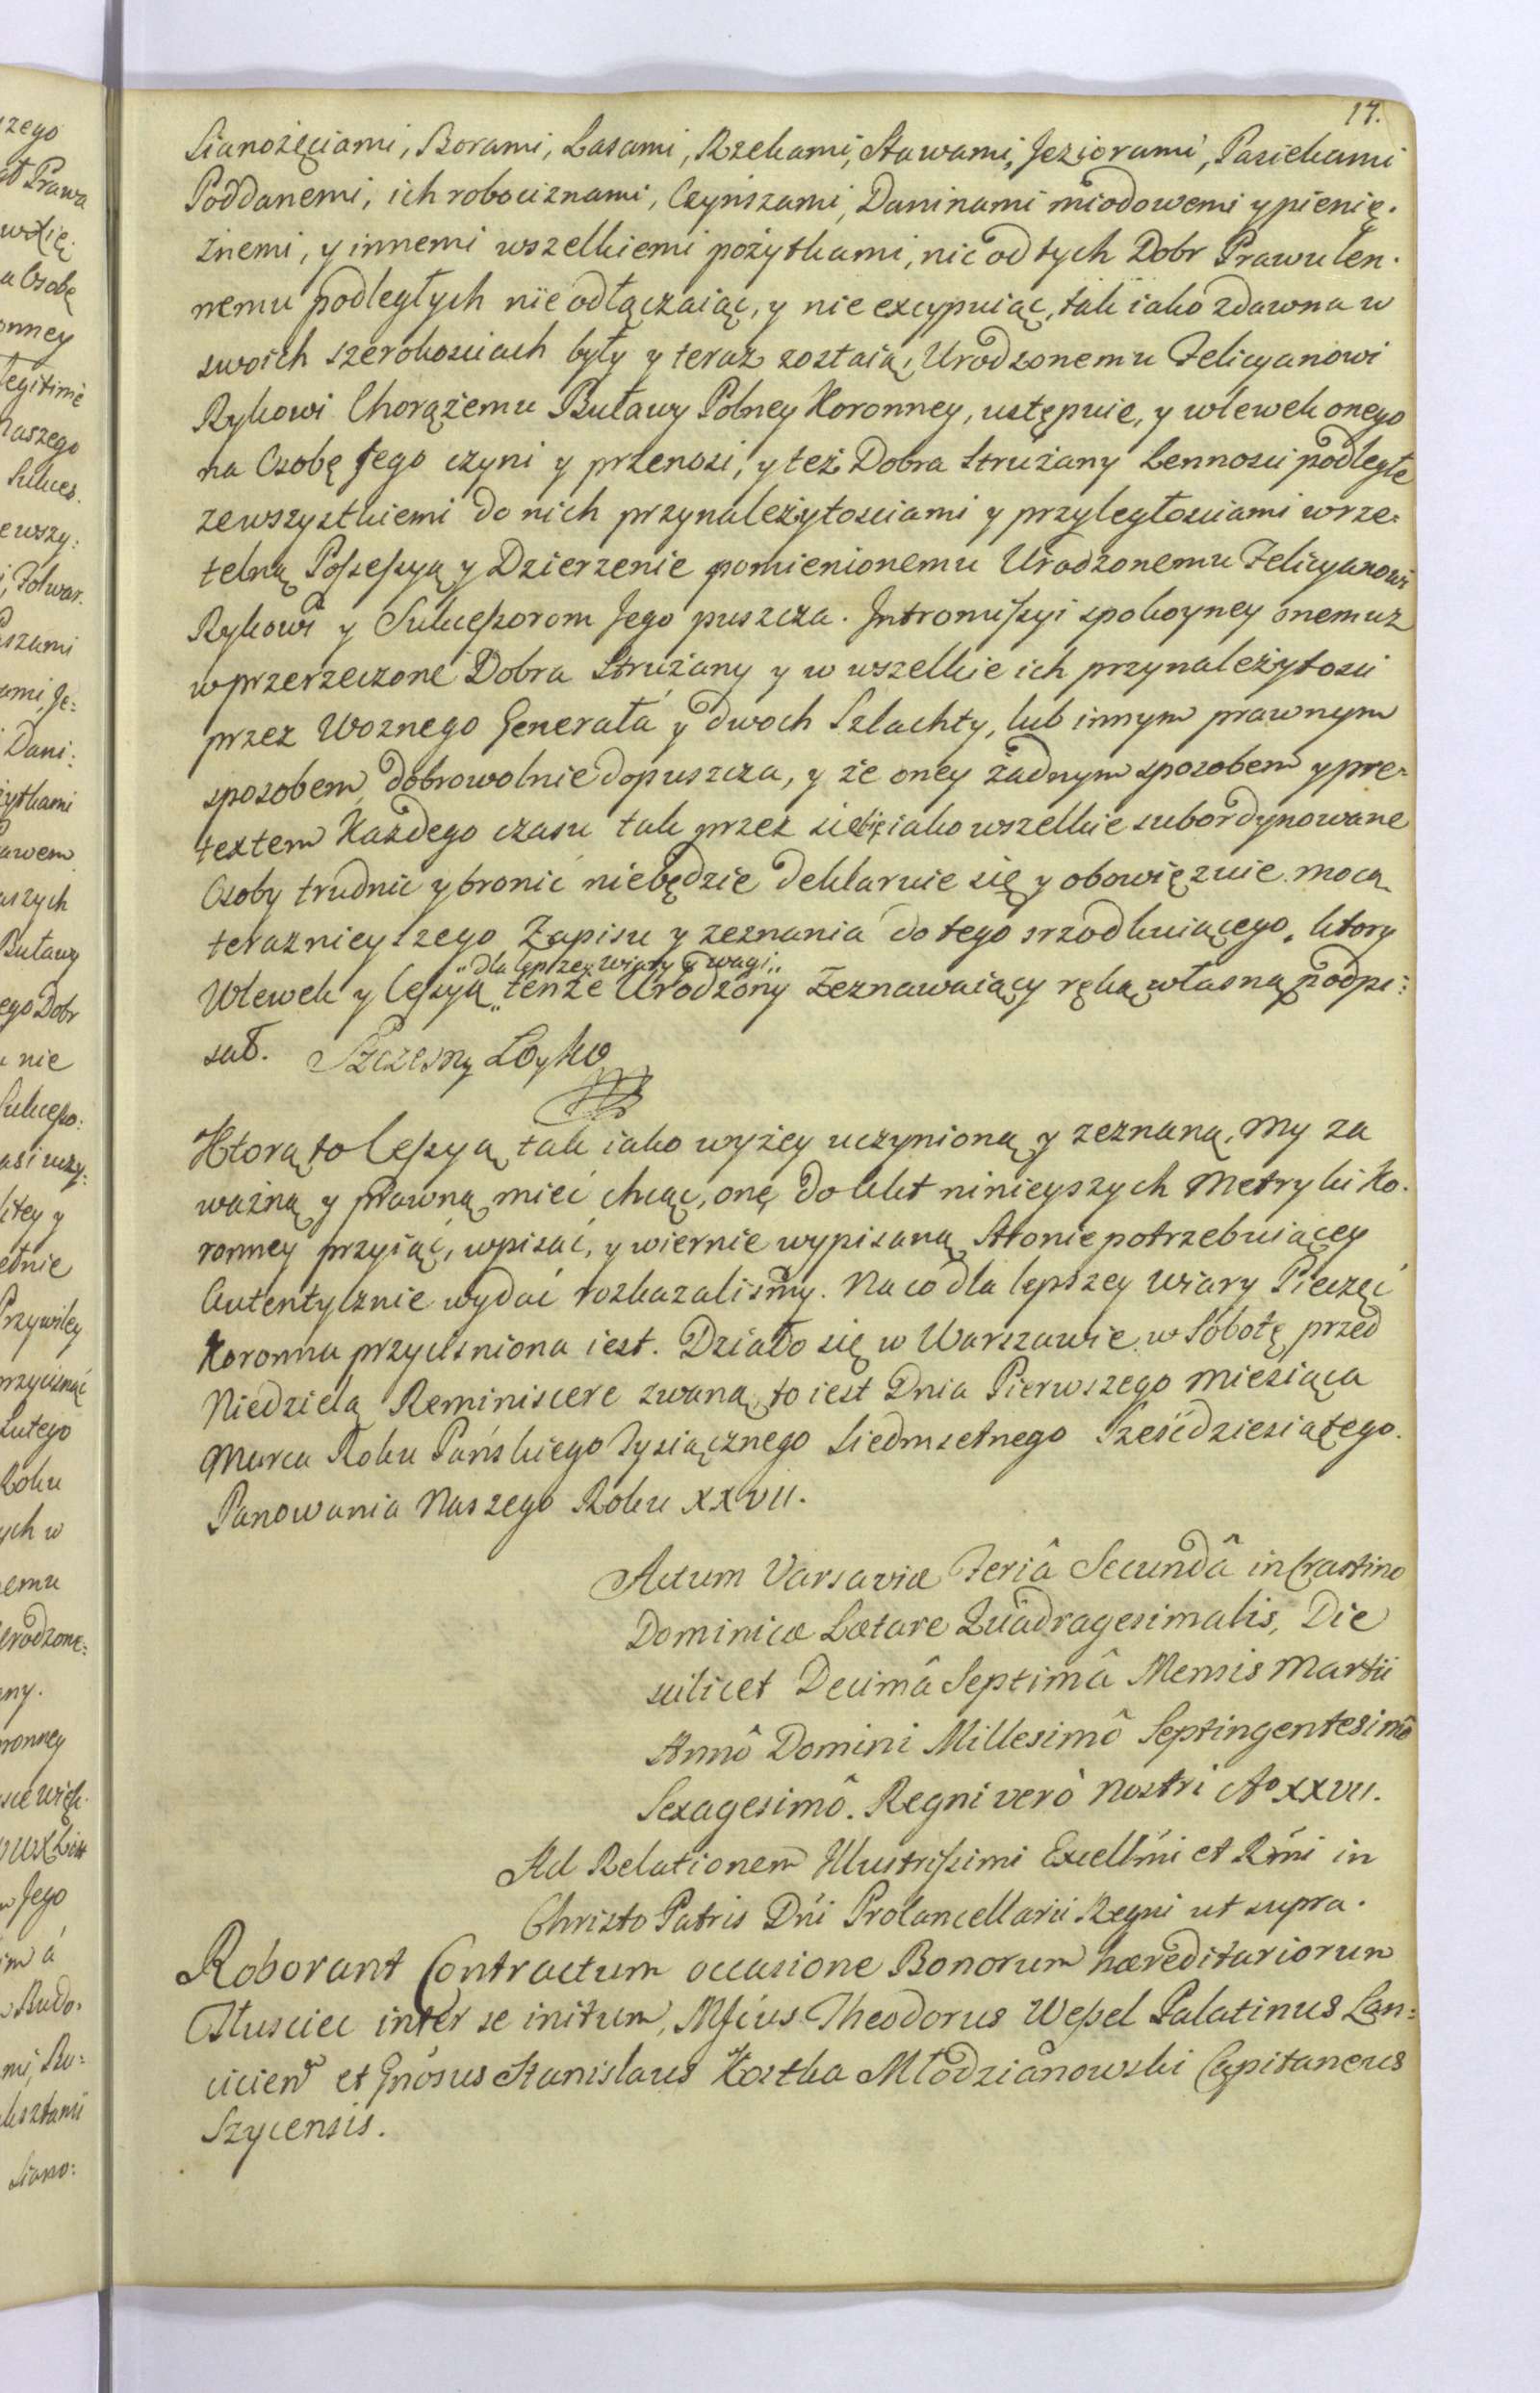 17.
Sianożęciami, Borami, Lasami, Rzekami, Stawami, Jeziorami, Pasiekami
Poddanemi, ich robociznami, Czynszami, Daninami miodowemi y pienię-
żnemi, y innemi wszelkiemi pożytkami, nic od tych Dobr Prawu len-
nemu podległych nie odłączaiąc, y nie excypuiąc, tak iako zdawna w
swoich szerokościach były y teraz zostaią, Urodzonemu Felicyanowi
Rykowi Chorążemu Buławy Polney Koronney, ustępuie, y wlewek onego
na Osobę Jego czyni y przenosi, y też Dobra Strużany Lennosci podległe
ze wszystkiemi do nich przynależytosciami y przyległosciami w rze-
telną Possessyą y Dzierzenie pomienionemu Urodzonemu Felicyanowi
Rykowi y Sukcessorom Jego puszcza. Intromissyi spokoyney onemuz
w przerzeczone Dobra Strużany y w wszelkie ich przynależytosci
przez Woznego Generała y dwoch Szlachty, lub innym prawnym
sposobem dobrowolnie dopuszcza, y że oney żadnym sposobem y pre-
textem Każdego czasu tak przez siebie iako wszelkie subordynowane
Osoby trudnic y bronic niebędzie deklaruie się y obowięzuie mocą
teraznieyszego Zapisu y zeznania do tego srzodkuiącego, ktory
„dla lepszey wiary y wagi„
Wlewek y Cessyą „ tenże Urodzony Zeznawaiący ręką własną podpi:
sał. Szczesny Łoyko
Ktorą to Cessyą tak iako wyżey uczynioną y zeznaną, My za
ważną y prawną mieć chcąc, onę do Akt ninieyszych Metryki Ko-
ronney przyiąć, wpisać, y wiernie wypisaną Stonie potrzebuiącey
Autentycznie wydać rozkazalismy. Na co dla lepszey wiary Pieczęć
Koronna przycisniona iest. Działo się w Warszawie w Sobotę przed
Niedzielą Reminiscere zwaną, to iest Dnia Pierwszego Miesiąca
Marca Roku Pańskiego Tysiącznego Siedmsetnego Sześćdziesiątego.
Panowania Naszego Roku XXVII.
Actum Varsaviæ Feriâ Secundâ in Crastino
Dominicæ Lætare Quadragesimalis, Die
scilicet Decimâ Septimâ Mensis Martii
Annô Domini Millesimô Septingentesimô
Sexagesimô. Regni verò Nostri Aº XXVII.
Ad Relationem Illustrissimi Excellmi et Rmi in
Christo Patris Dni Procancellarii Regni ut supra.
Roborant Contractum occasione Bonorum hæreditariorum
Tłusciec inter se initum, Mfcus Theodorus Wessel Palatinus Lan:
cicien et Gnosus Stanislaus Kostka Młodzianowski Capitaneus
Szycensis.